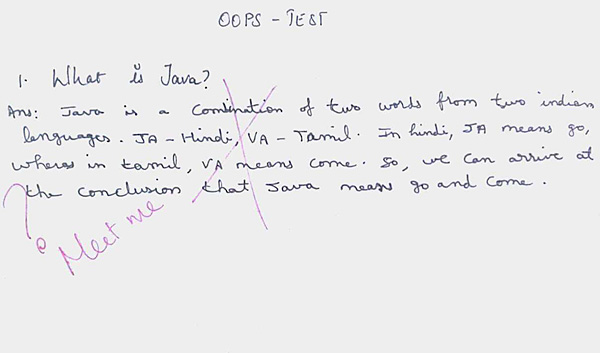 OOPS - TEST
1. What is Java?
Ans: Java is a combination of two words from two indian
languages. JA - Hindi, VA - Tamil. In hindi, JA means go,
wheres in tamil, VA means come. So, we can arrive at
the conclusion that Java means go and come.
Meet me